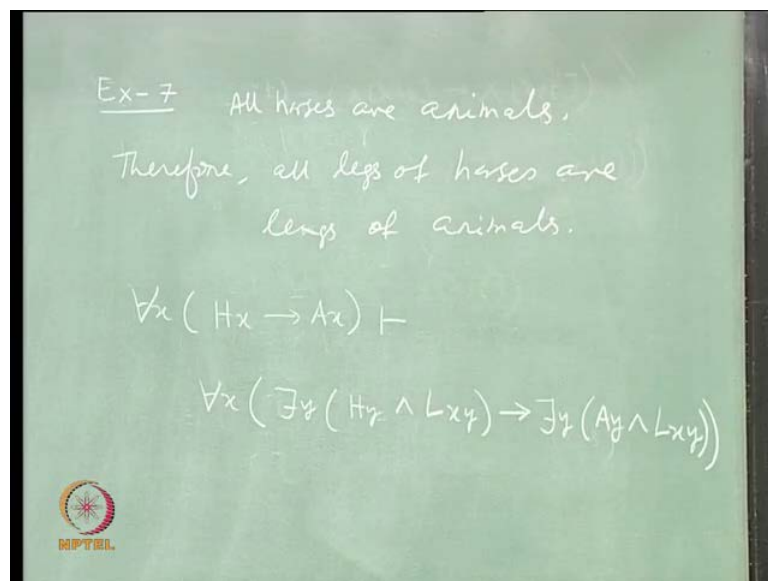 Ex-7 All horses are animals.
Therefore, all legs of horses are
lengs of animals.
∀x ( Hx → Ax ) ⊢
∀x ( ∃y ( Hy ∧ Lxy ) → ∃y ( Ay ∧ Lxy ) )
NPTEL